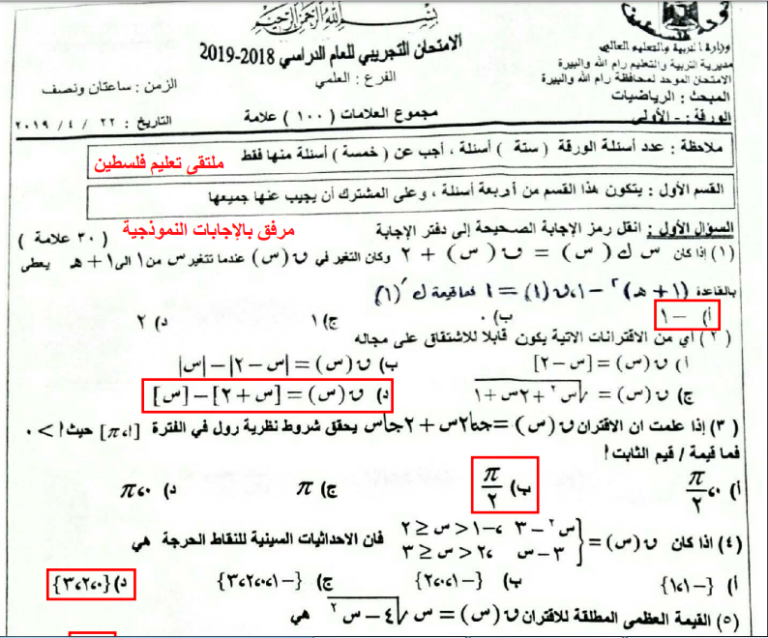 بسم الله الرحمن الرحيم
وزارة التربية والتعليم العالي
مديرية التربية والتعليم رام الله والبيرة
الامتحان الموحد لمحافظة رام الله والبيرة
المبحث : الرياضيات
الورقة - الأولى
الامتحان التجريبي للعام الدراسي 2018-2019
الفرع : العلمي
مجموع العلامات ( ١٠٠ ) علامة
الزمن : ساعتان ونصف
التاريخ : ٢٢ / ٤ / ٢٠١٩
ملاحظة : عدد أسئلة الورقة ( ستة ) أسئلة ، أجب عن ( خمسة ) أسئلة منها فقط ملتقى تعليم فلسطين
القسم الأول : يتكون هذا القسم من أربعة أسئلة ، وعلى المشترك أن يجيب عنها جميعها
السؤال الأول : انقل رمز الإجابة الصحيحة إلى دفتر الإجابة مرفق بالإجابات النموذجية ( ٣٠ علامة )
(١) إذا كان س ك (س) = ق (س) + ٢ وكان التغير في ق (س) عندما تتغير س من ١ الى ١ + هـ يعطى
بالقاعدة (١ + هـ)^٢ - ١ ، ق (١) = ١ فما قيمة ك′ (١)
أ) -١ ب) ٠ ج) ١ د) ٢
(٢) أي من الاقترانات الاتية يكون قابلا للاشتقاق على مجاله
أ) ق (س) = [س - ٢] ب) ق (س) = |س - ٢| - |س|
ج) ق (س) = √(س^٢ + ٢س + ١) د) ق (س) = [س + ٢] - [س]
(٣) إذا علمت ان الاقتران ق (س) = جتا٢س + ٢جاس يحقق شروط نظرية رول في الفترة [٠،أπ] حيث أ > ٠
فما قيمة / قيم الثابت أ
أ) ٠، π/٢ ب) π/٢ ج) π د) ٠، π
(٤) اذا كان ق (س) = { س^٢ - ٣ ، -١ < س ≤ ٢
٣ - س ، ٢ < س ≤ ٣ فان الاحداثيات السينية للنقاط الحرجة هي
أ) {-١،١} ب) {-١،٠،٢} ج) {-١،٠،٢،٣} د) {٠،٢،٣}
(٥) القيمة العظمى المطلقة للاقتران ق (س) = س √(٤ - س^٢) هي